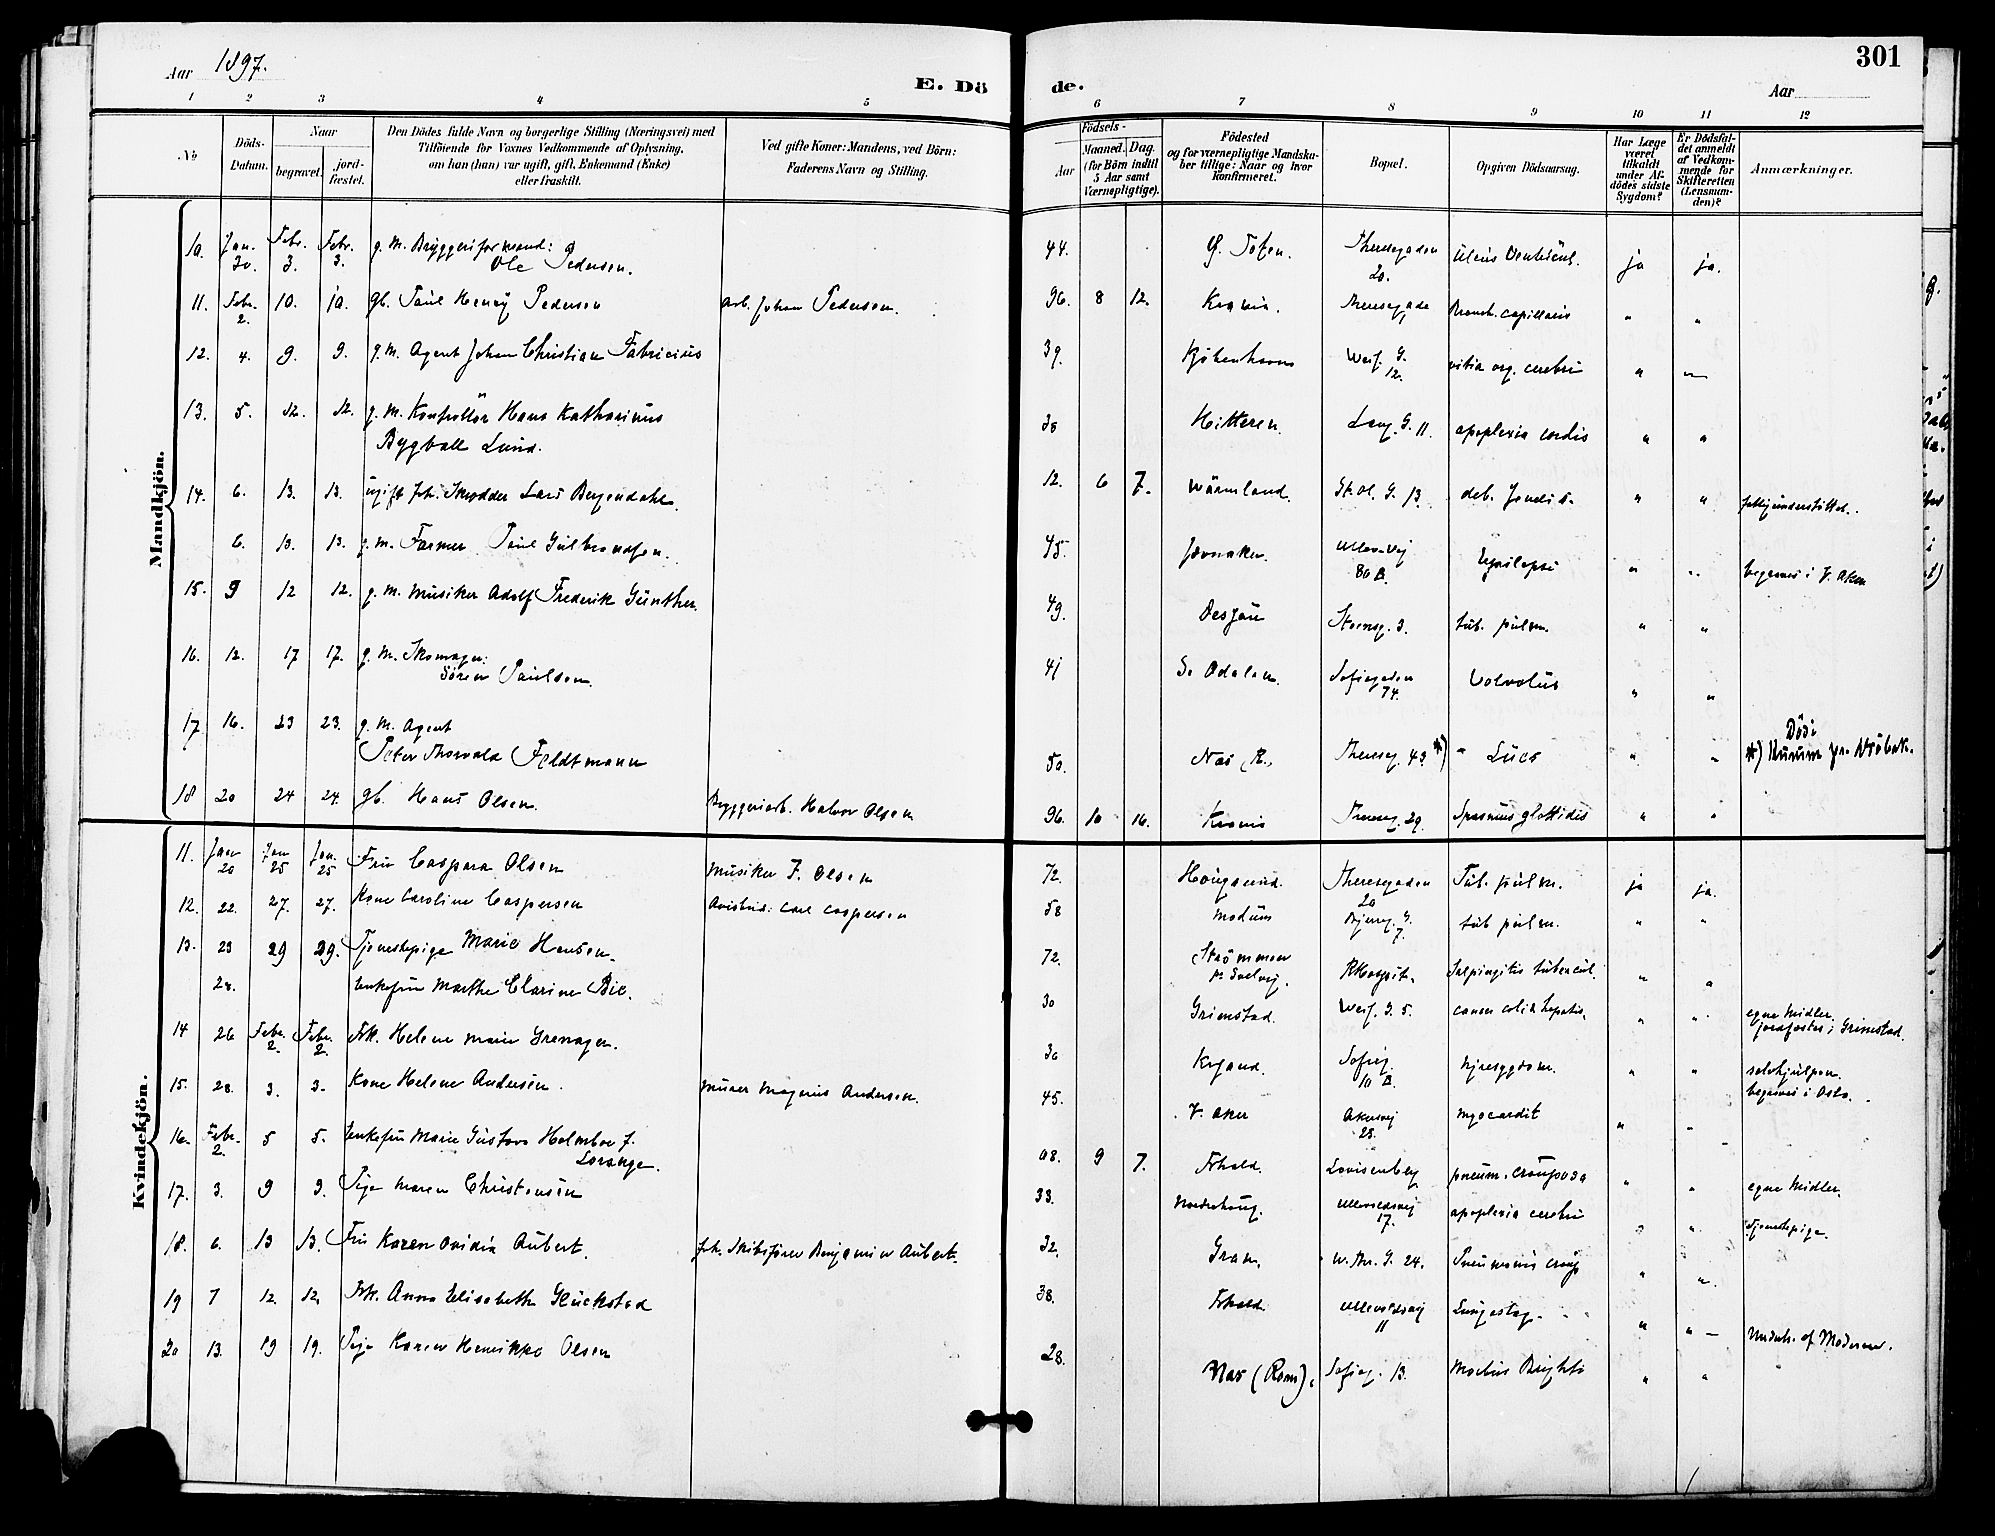 Aar 1897.
E. Dö de.
Aar
301
1 2 3 4 5 6 7 8 9 10 11 12
No
Döds-Datum.
Naar
begravet.
jord-fæstet.
Den Dödes fulde Navn og borgerlige Stilling (Næringsvei) med
Tilföiende for Voxnes Vedkommende af Oplysning,
om han (hun) var ugift, gift, Enkemand (Enke)
eller fraskilt.
Ved gifte Koner: Mandens, ved Börn:
Faderens Navn og Stilling.
Födsels-
Aar
Maaned. Dag.
(for Börn indtil
5 Aar samt
Værnepligtige).
Födested
og for værnepligtige Mandska-
ber tillige: Naar og hvor
Konfirmeret.
Bopæl.
Opgiven Dödsaarsag.
Har Læge
været
tilkaldt
under Af-
dödes sidste
Sygdom?
Er Dödsfal-
det anmeldt
af Vedkom-
mende for
Skifteretten
(Lensman-
den)?
Anmærkninger.
Mandkjön.
10. Jan. 30. Febr. 3. Febr. 3. g. M. Bryggeriformand: Ole Pedersen. 44. Ø. Toten. Theresegaden 20. Ulcus Ventricul. ja ja.
11. Febr. 2. 10. 10. gb. Paul Henry Pedersen Arb. Johan Pedersen. 96. 8 12. Krania. Theresegade 1 Bronch. capillaris " "
12. 4. 9. 9. g. M. Agent Johan Christian Fabricius 39. Kjøbenhavn 12. vitia org. cerebri " "
13. 5. 12. 12. g. M. Kontrollör Hans Katharinus Bygball Lund. 38 Hitteren. Lang. G. 11. apoplexia cordis " "
14. 6. 13. 13. ugift fh. Skrædder Lars Bergendahl. 12. 6 7. Wärmland. Skol. G. 13. deb. " "
6. 13. 13. g. M. Farmer Paul Gulbrandsen. 45. Jevnaker. Ullev. vej 80 B. Epilepsi " " begraves i V. Aker
15. 9 12 12. g. M. Musiker Adolf Frederik Günther. 49. Dessau Stensg. 3. tub. pulm. " "
16. 12. 17 17. g. M. Skomager: Sören Paulsen. 41 Sö Odalen. Sofiegaden 74. Volvolus " "
17. 16. 23 23. g. M. Agent Peter Thorvald Feldtmann 50. Nas (R., Thereseg. 43 *) Lues " " Död i *) Hurum pr. Dröbak.
18 20 24 24. gb. Hans Olsen. Bryggeriarb. Halvor Olsen 96. 10 16. Krania Thereseg. 29. Spasmus glottidis " "
Kvindekjön.
11. Jan 20 Jan 25 Jan. 25 Fru Caspara Olsen Musiker J. Olsen 72. Haugsund. Theresegaden 20 Tub. pulm. ja ja.
12. 22. 27. 27. Kone Caroline Caspersen Carl Caspersen 58 Modum Bjerreg. G. 7. tub pulm. " "
13. 23 29 29. Tjenestepige Marie Hansen. 72. Strömmen p. Svelvig. RHospit. Salpingitis tubercul. " "
28. Enkefru Marthe Clarine Bie. 30 Grimstad. G. 5. cancer coli & hepatis. " " egne Midler. jordfæstes i Grimstad.
14 26 Febr. 2. Febr. 2. Frk. Helene Marie Grenager. 30 Krsand. Sofieg. 10 B. nyresygdom. " " selvhjulpen.
15. 28. 3. 3. Kone Helene Andersen. Murer Magnus Andersen. 45. V. Aker Akersvej 25. myocardit " " begraves i Oslo.
16. Febr. 2. 5 5. Enkefru Marie Gustava Holmboe f. Lorange. 08. 9 7. Frhald. Lovisenberg pneum. crouposa " " egne Midler.
17. 3. 9 9. Pige Maren Christensen 33. Norderhoug. Ullevoldsvej 17. apoplexia cerebri " " Tjenestepige.
18. 6. 13 13. Fru Karen Ovidia Aubert. fh. Skibsfører Benjamin Aubert. 32. Gran. W. Thr. G. 24. Pneumonia croup " "
19 7 12. 12. Frk. Anna Elisabeth Glückstad 38. Frhald. Ullevoldsvej 11 Lungeslag. " " Underh. af Moderen.
20 13. 19 19. Pige Karen Henrikke Olsen 28. Nas (Rom). Sofieg. 13. Morbus Brightii " "